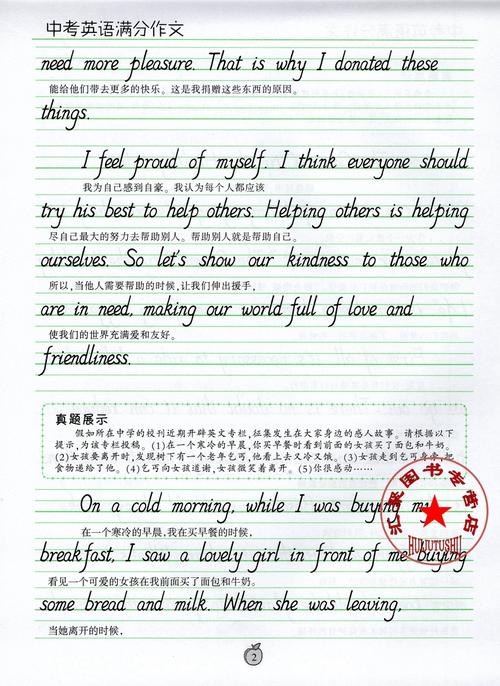 中考英语满分作文
need more pleasure. That is why I donated these
能给他们带去更多的快乐。这是我捐赠这些东西的原因。
things.
I feel proud of myself. I think everyone should
我为自己感到自豪。我认为每个人都应该
try his best to help others. Helping others is helping
尽自己最大的努力去帮助别人。帮助别人就是帮助自己。
ourselves. So let's show our kindness to those who
所以,当他人需要帮助的时候,让我们伸出援手,
are in need, making our world full of love and
使我们的世界充满爱和友好。
friendliness.
真题展示
假如所在中学的校刊近期开辟英文专栏,征集发生在大家身边的感人故事。请根据以下
提示,为该专栏投稿。(1)在一个寒冷的早晨,你买早餐时看到前面的女孩买了面包和牛奶。
(2)女孩要离开时,发现树下有一个老年乞丐,他看上去又冷又饿。(3)女孩走到乞丐身旁,把
食物递给了他。(4)乞丐向女孩道谢,女孩微笑着离开。(5)你很感动……
On a cold morning, while I was buying my
在一个寒冷的早晨,我在买早餐的时候,
breakfast, I saw a lovely girl in front of me buying
看见一个可爱的女孩在我前面买了面包和牛奶。
some bread and milk. When she was leaving,
当她离开的时候,
汇聚图书专营店
HUIJUTUSHU
2